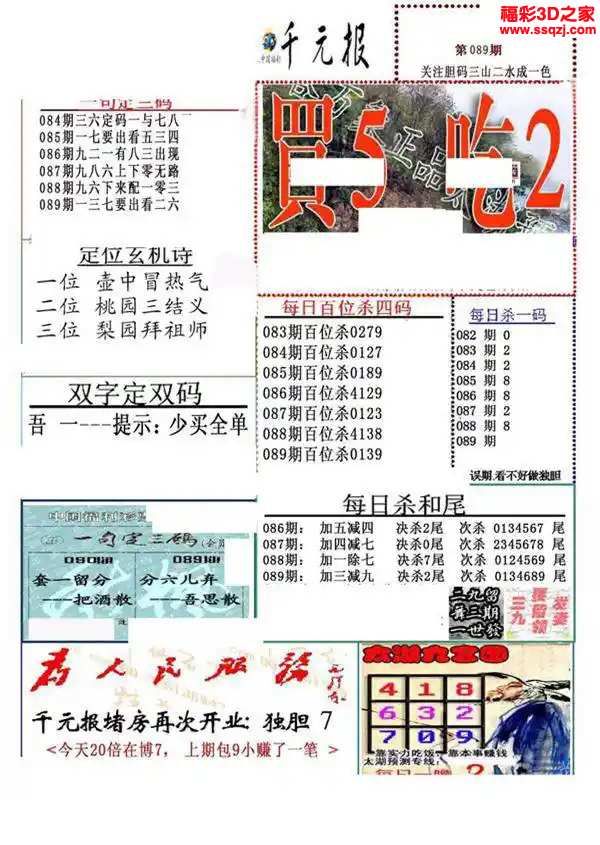 福彩3D之家
www.ssqzj.com
千元报
第089期
关注胆码三山二水成一色
一句定三码
084期三六定码一与七八
085期一七要出看五三四
086期九二一有八三出现
087期九八六上下零无路
088期九六下来配一零三
089期一三七要出看二六
買5 吃2
定位玄机诗
一位 壶中冒热气
二位 桃园三结义
三位 梨园拜祖师
每日百位杀四码
083期百位杀0279
084期百位杀0127
085期百位杀0189
086期百位杀4129
087期百位杀0123
088期百位杀4138
089期百位杀0139
每日杀一码
082 期 0
083 期 2
084 期 2
085 期 8
086 期 8
087 期 2
088 期 8
089 期
误期.看不好做独胆
双字定双码
吾 一---提示：少买全单
每日杀和尾
086期： 加五减四 决杀2尾 次杀 0134567 尾
087期： 加四减七 决杀0尾 次杀 2345678 尾
088期： 加一除七 决杀7尾 次杀 0124569 尾
089期： 加三减九 决杀2尾 次杀 0134689 尾
一句定三码
090期 089期
套一留分 分六儿弃
---把酒散 ---吾思散
为人民服务
千元报堵房再次开业：独胆 7
<今天20倍在博7， 上期包9小赚了一笔 >
4 1 8
6 3 2
7 0 9
靠实力吃饭，靠本事赚钱
太湖预测专线：